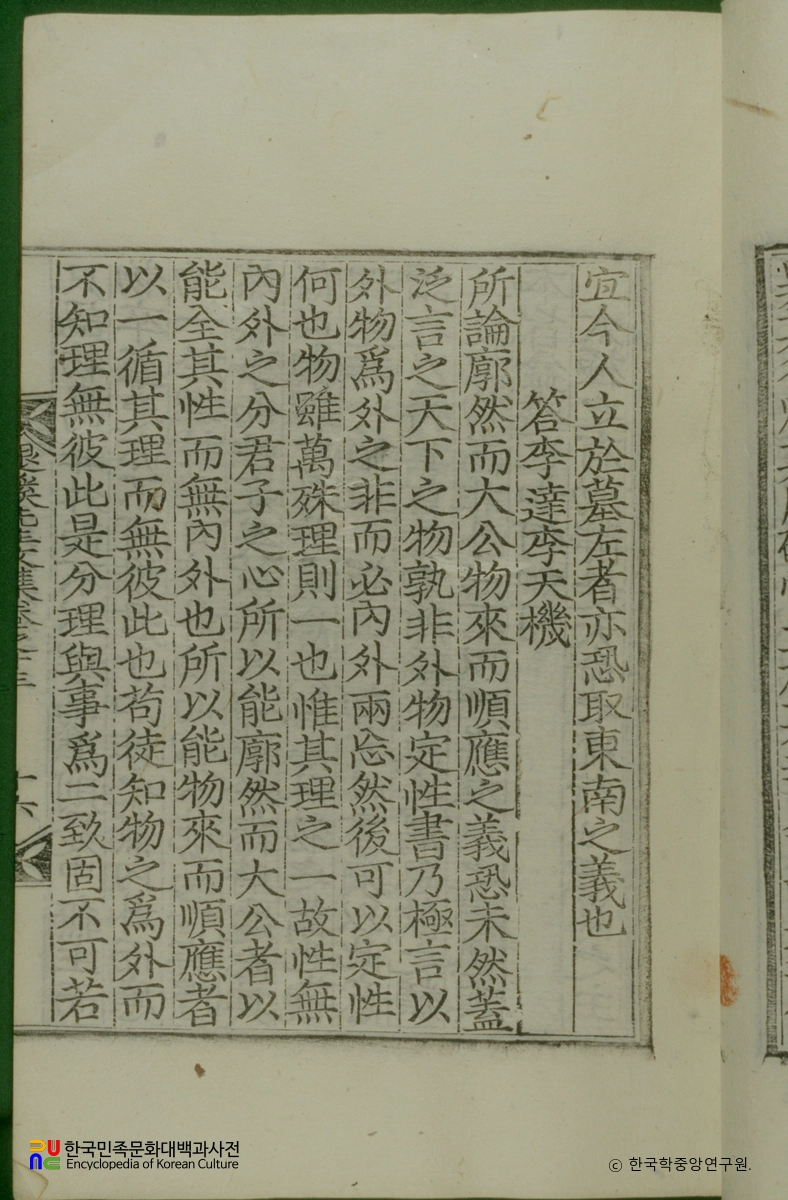 宜今人立於墓左者亦恐取東南之義也
答李達李天機
所論廓然而大公物來而順應之義恐未然蓋
泛言之天下之物孰非外物定性書乃極言以
外物爲外之非而必內外兩忘然後可以定性
何也物雖萬殊理則一也惟其理之一故性無
內外之分君子之心所以能廓然而大公者以
能全其性而無內外也所以能物來而順應者
以一循其理而無彼此也苟徒知物之爲外而
不知理無彼此是分理與事爲二致固不可若
退溪先生文集卷之十三
十六
한국민족문화대백과사전
Encyclopedia of Korean Culture
ⓒ 한국학중앙연구원.